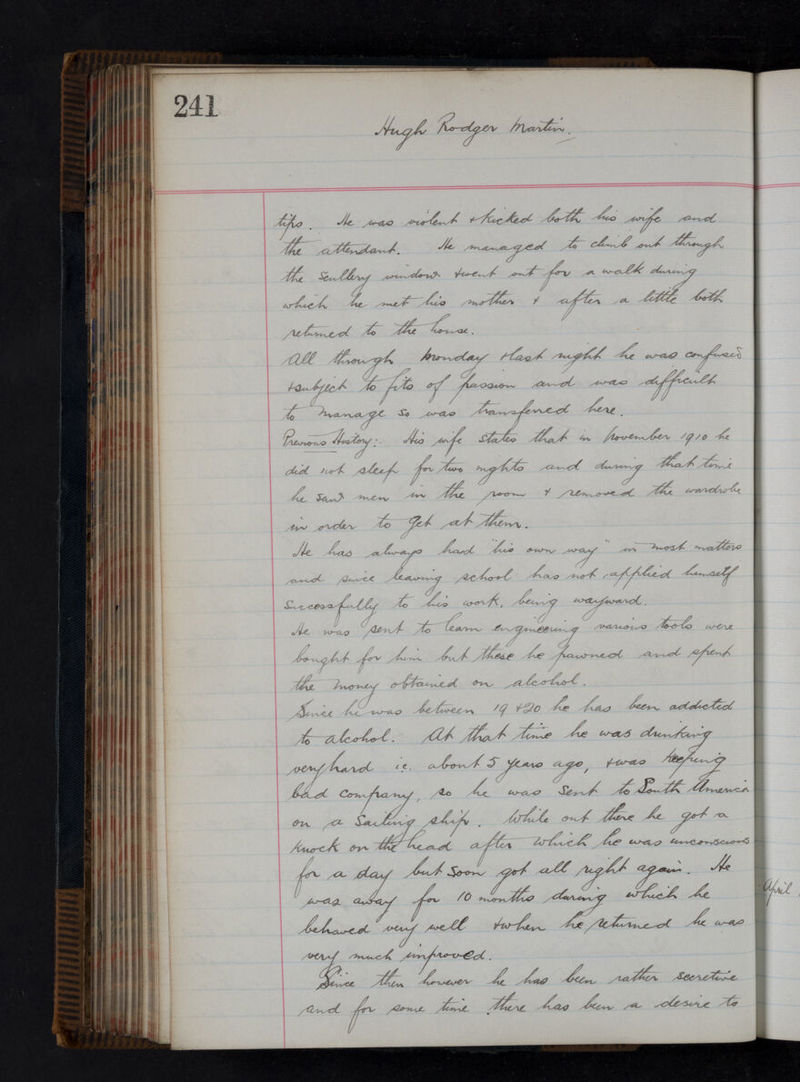 241
Hugh Rodger Martin.
tips. He was violent & kicked both his wife and
the attendant. He managed to climb out through
the Scullery window & went out for a walk during
which he met his mother & after a little both
returned to the house.
All through Monday & last night he was confused
& subject to fits of passion and was difficult
to manage so was transferred here.
Previous History: His wife states that in November 1910 he
did not sleep for two nights and during that time
he saw men in the room & removed the wardrobe
in order to get at them.
He has always had "his own way" in most matters
and since leaving school has not applied himself
successfully to his work, being wayward.
He was sent to learn engineering various tools were
bought for him but these he pawned and spent
the money obtained on alcohol.
Since he was between 19 & 20 he has been addicted
to alcohol. At that time he was drinking
very hard i.e. about 5 years ago, & was keeping
bad company, so he was sent to South America
on a Sailing ship. While out there he got a
knock on the head after which he was unconscious
for a day but soon got all right again. He
was away for 10 months during which he
behaved very well & when he returned he was
very much improved.
Since then however he has been rather secretive
and for some time there has been a desire to
April